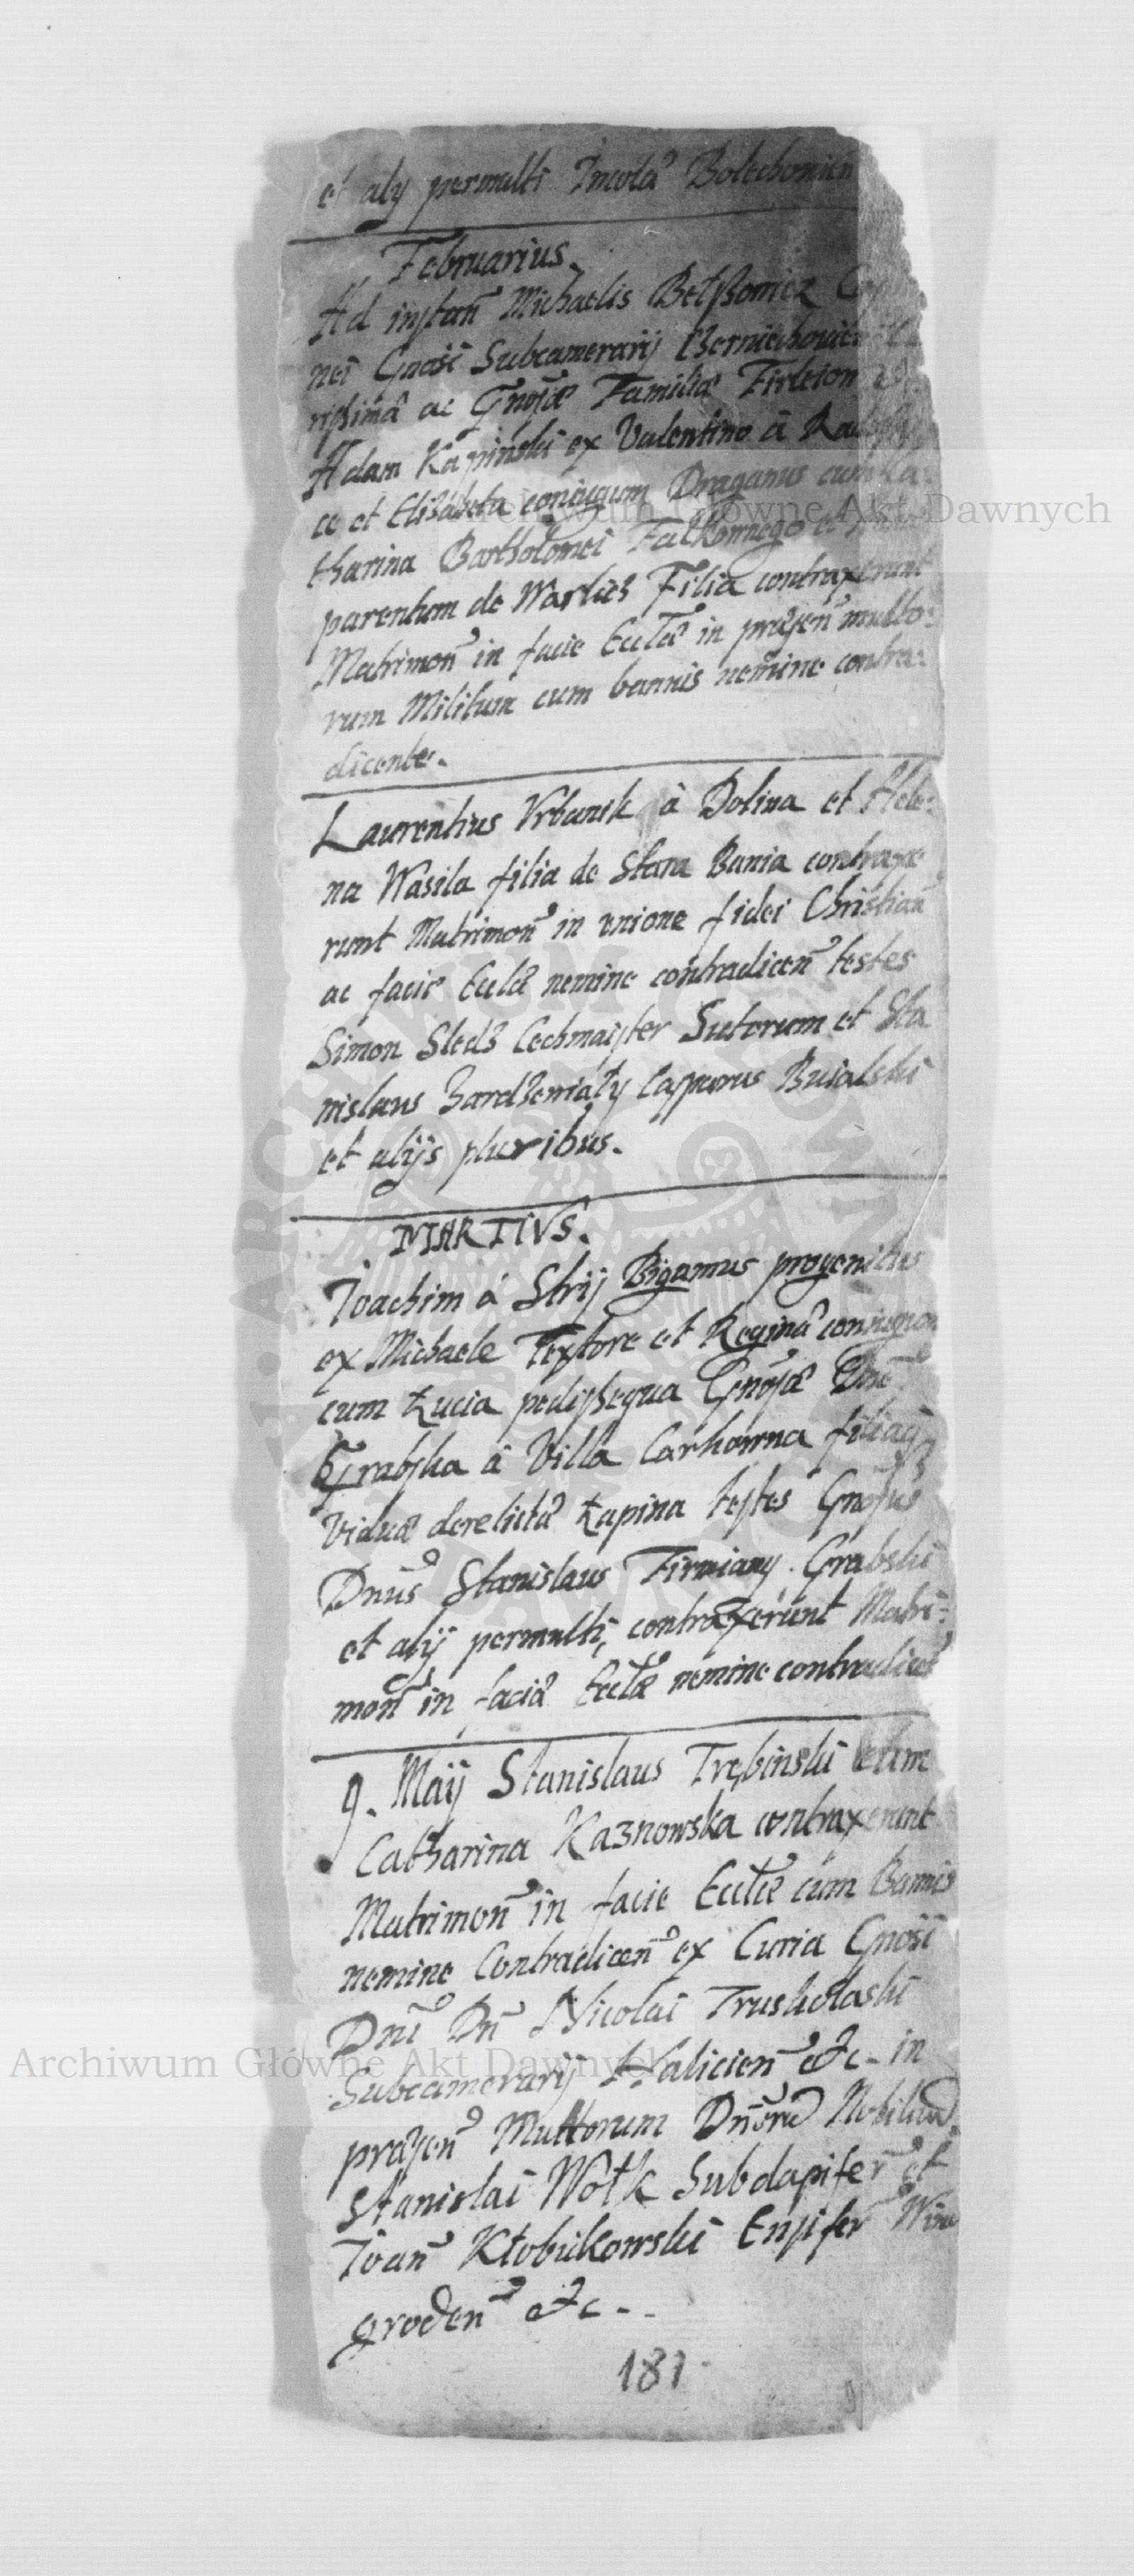 et alÿ permulti Incolæ Bolechovien
Februarius.
Ad instan̄ Michaelis Betßowicz
nei Gnosi Subcamerarÿ Czerniechovien
rissimæ ac Gnosæ Familiæ Firleiom
Adam Kapinski ex Valentino à
ce et Elizabeta coniugum Draganus cum Ca:
tharina Bartholomei Falkownego et
parentum de Warlicz Filia contraxerunt
Matrimon̄ in facie Ecclæ in præsen̄ multo:
rum Militum cum bannis nemine contra:
dicente.
Laurentius Vrbanik à Dolina et Hele:
na Wasila filia de Stara Bania contraxe
runt Matrimon̄ in vnione fidei Christian̄
ac facie Ecclæ nemine contradicen̄ testes
Simon Sledz Cechmaister Sutorum et Sta
nislaus Zardzewiały Casparus Buialski
et alÿs pluribus.
MARTIVS.
Joachim á Strÿ Bigamus progenitus
ex Michaele Textore et Reginæ coniugum
cum Łucia pedissequa Gnosæ Dnæ
Grabska à Villa Carhowna filiaq3
viduæ derelictæ Łapina testes Gnosus
Dnūs Stanislaus Firmiany. Grabski
et alÿ permulti, contraxerunt Matri:
mon̄ in faciæ Ecclæ nemine contradicen̄
9. Maÿ Stanislaus Trębinski cum
Catharina Kaznowska contraxerunt
Matrimon̄ in facie Ecclæ cum Bannis
nemine Contradicen̄ ex Curia Gnosi
Dnī Dn̄ Nicolai Truskolaski
Subcamerarÿ Halicien̄ &c. in
præsen̄ Multorum Dn̄oru Nobilium
Stanislai Wołk Subdapifer̄ et
Joan̄ Kłobukowski Ensifer̄ Wino
groden̄ &c--
181
Archiwum Główne Akt Dawnych
Archiwum Główne Akt Dawnych